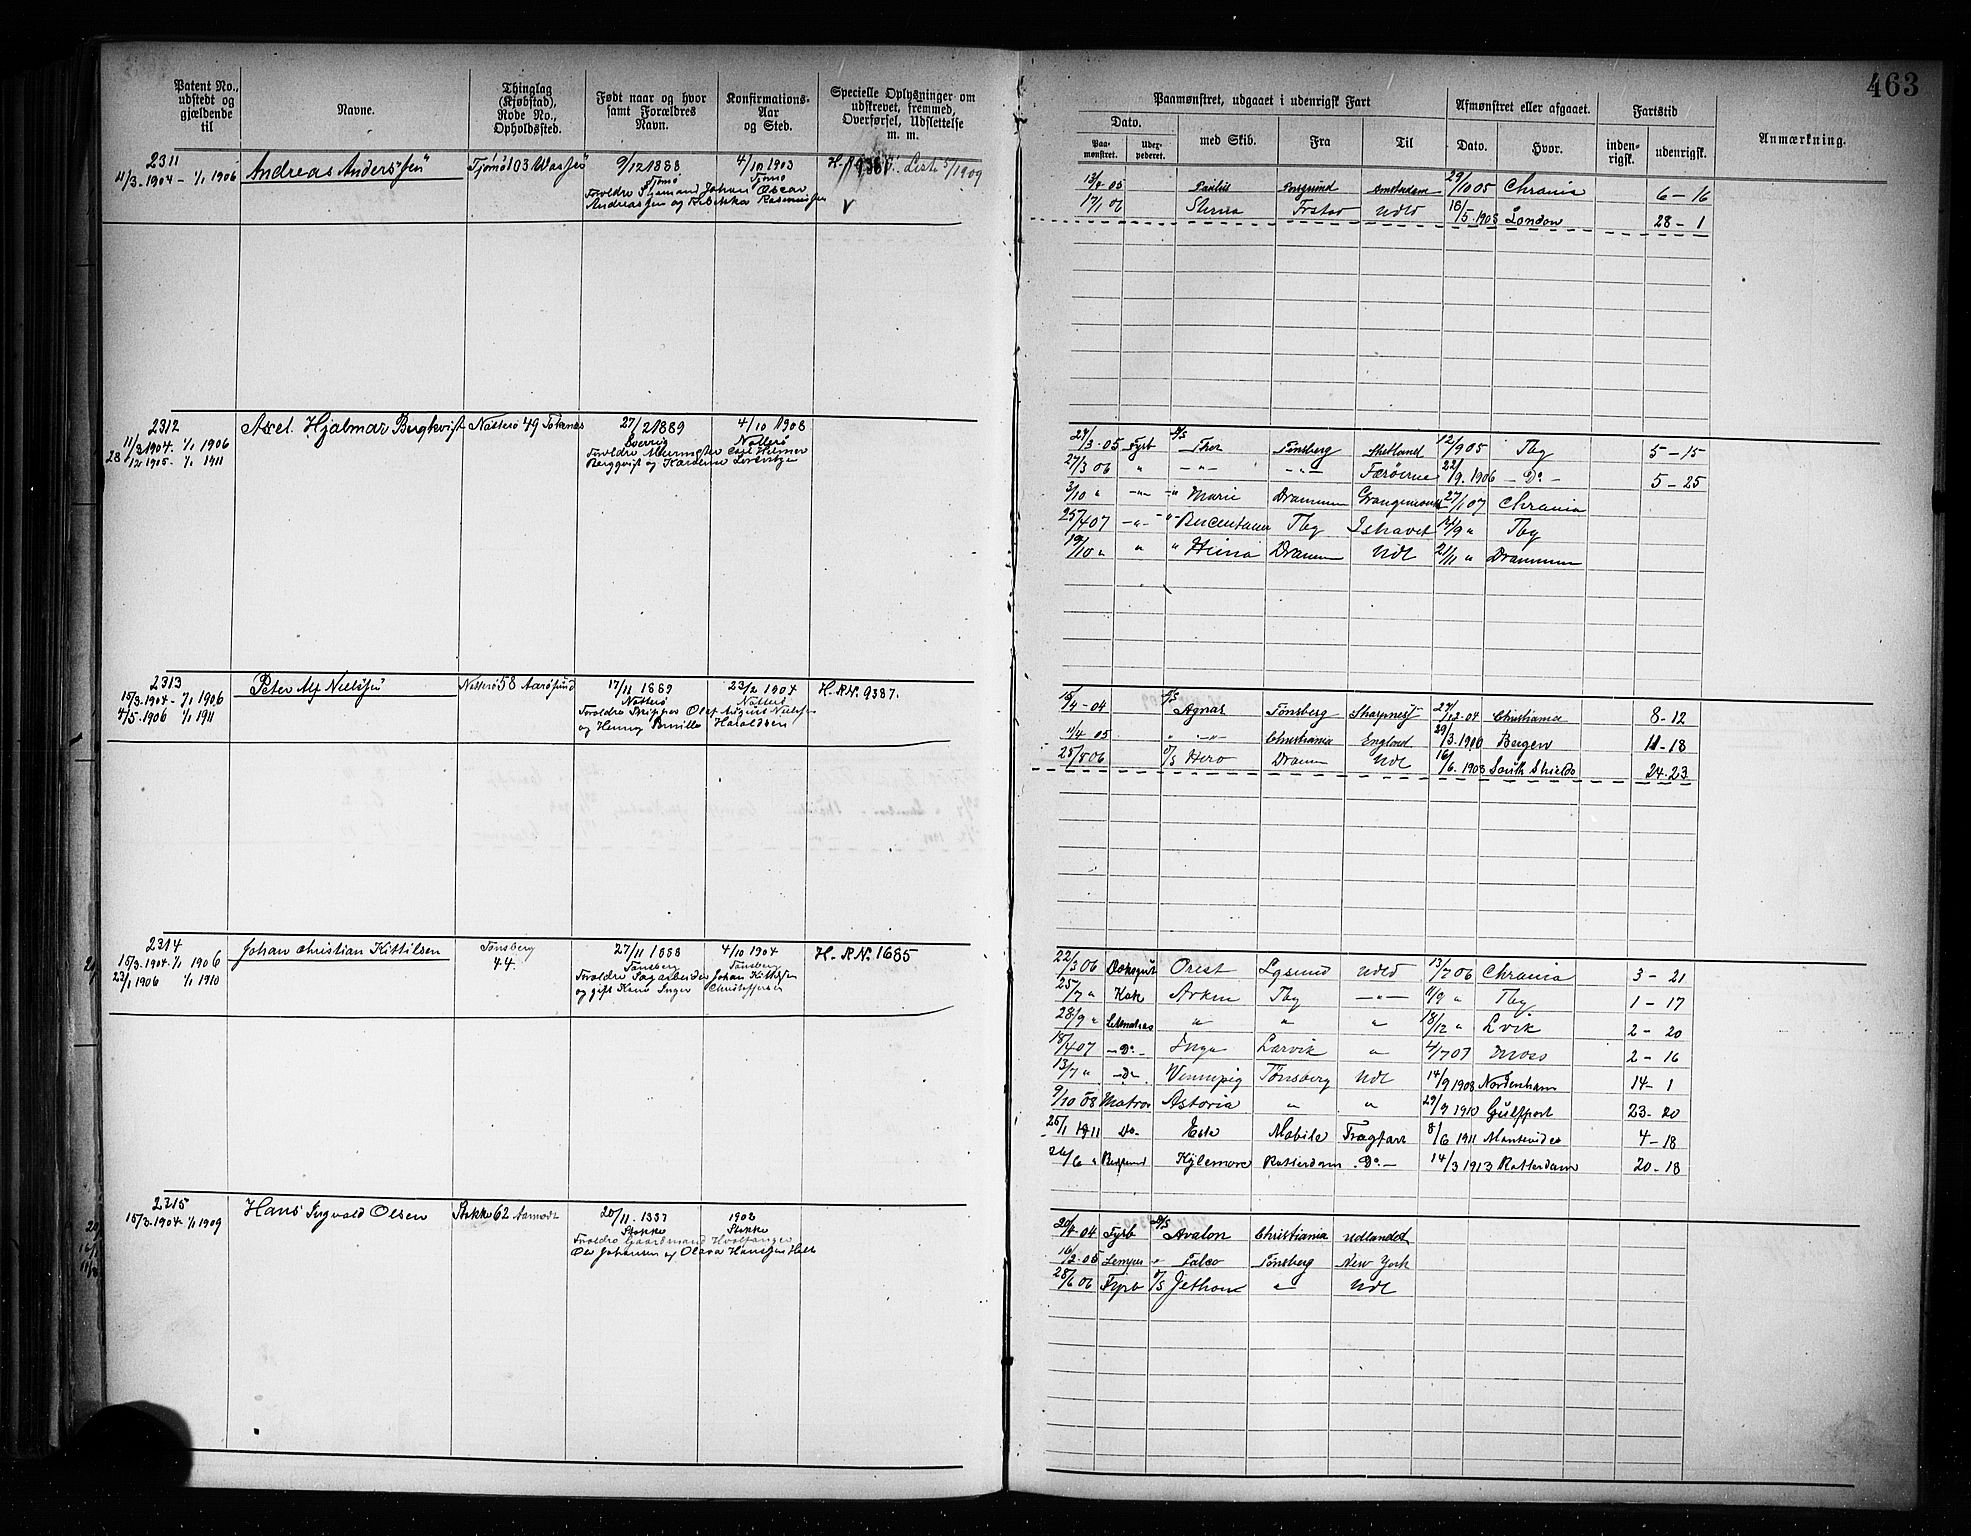 463
Patent No., udstedt og gjældende til
Navne.
Thinglag (Kjøbstad), Rode No., Opholdssted.
Født naar og hvor samt Forældres Navn.
Konfirmations-Aar og Sted.
Specielle Oplysninger om udskrevet, fremmed, Overførsel, Udslettelse m. m.
Paamønstret, udgaaet i udenrigsk Fart
Afmønstret eller afgaaet.
Fartstid
Anmærkning.
Dato.
Paa-mønstret.
Uder-pederet.
med Skib.
Fra
Til
Dato.
Hvor.
inden-rigsk.
udenrigsk.
2311
11/3-1904 - 1/1 1906
Andreas Anderssen
Tjømø 103
9/12 1888
Tjømø
4/10 1903
Tjømø
Forældre Johan Oscar
Andreassen og Rebekka Rasmussen
5/1909
13/4 05 Porsgrund Amsterdam 29/10 05 Chrania 6 - 16
17/1 06 Frstad Udld London 28 - 1
2312
11/3 1904. 1/1 1906
28/12 1905. 1/1 1911
Axel Hjalmar Bergkvist
Nøtterø 49
27/2 1889
Sverrig
4/10 1908
Nøtterø
Bergqvist og
27/3-05 Fyrb D/S Thor Tønsberg Shetland 12/9 05 Tbg 5 - 15
27/3 06 " - " - - " - Færøerne 22/9. 1906 - Do - 5 - 25
3/10 " - " - Marie Drammen 27/1 07 Chrania
25/4 07 - " - Tbg Ishavet 14/9 " Tbg
19/10 " " " Drammen Udl 21/11 " Drammen
2313
15/3-1904 - 1/1 1906
4/5. 1906 1/1 1911
Peter Alf Nielsen
Nøtterø 58 Aarøsund
17/11 1889
Nøtterø
23/2 1904
Nøtterø
Forældre Skipper Olaf August Nielsen
og Henny Pernille Haraldsen
H.R.N. 9387.
15/4-04 D/S Agnar Tønsberg Sharpness 27/12-04 Christiania 8-12
1/4 05 " - " - Christiania England 29/3. 1906 Bergen 11-18
25/5 06 D/S Hero Dramm Udl 16/6. 1908 South Shields 24-23
2314
15/3-1904. 1/1 1906
23/1 1906 1/1 1910
Johan Christian Kittilsen
Tønsberg
44.
27/11 1888
Tønsberg
4/10 1904
Tønsberg
Forældre Sagarbeider Johan Kittilsen
og gift Kone Inger Christoffersen
H.R.N. 1685
22/3 06 Dæksgut Orest Udld 13/7 06 Chrania 3 - 21
25/7 " Kok Tbg - " - 11/9 " Tbg 1 - 17
28/9 " Letmatros " " " 18/12 " Lvik 2 - 20
18/4 07 - Do - Inga Larvik " 4/7 07 Moss 2 - 16
13/7 " - Do - Tønsberg Udl 14/9 1908 Nordenham 14 - 1
9/10 08 Matros Astoria " " 29/9 1910 Gulfport 23 - 20
25/1 1911 Do - Mobile Fragtfart 8/6 1911 Montevideo 4 - 18
26/6 " Kylemore Rotterdam Do - 14/3 1913 Rotterdam 20 - 18
2315
15/3-1904 - 1/1 1909
Hans Ingvald Olsen
Stokke 62
Stokke
1902
Stokke
Forældre Gaardmand Hvalfanger
Ole Johansen og Olava Hanssen
20/4 04 Fyrb D/S Avalon Christiania Udlandet
16/2-05 Lemper " Falco Tønsberg New York
28/6 06 Fyrb D/S " Udl